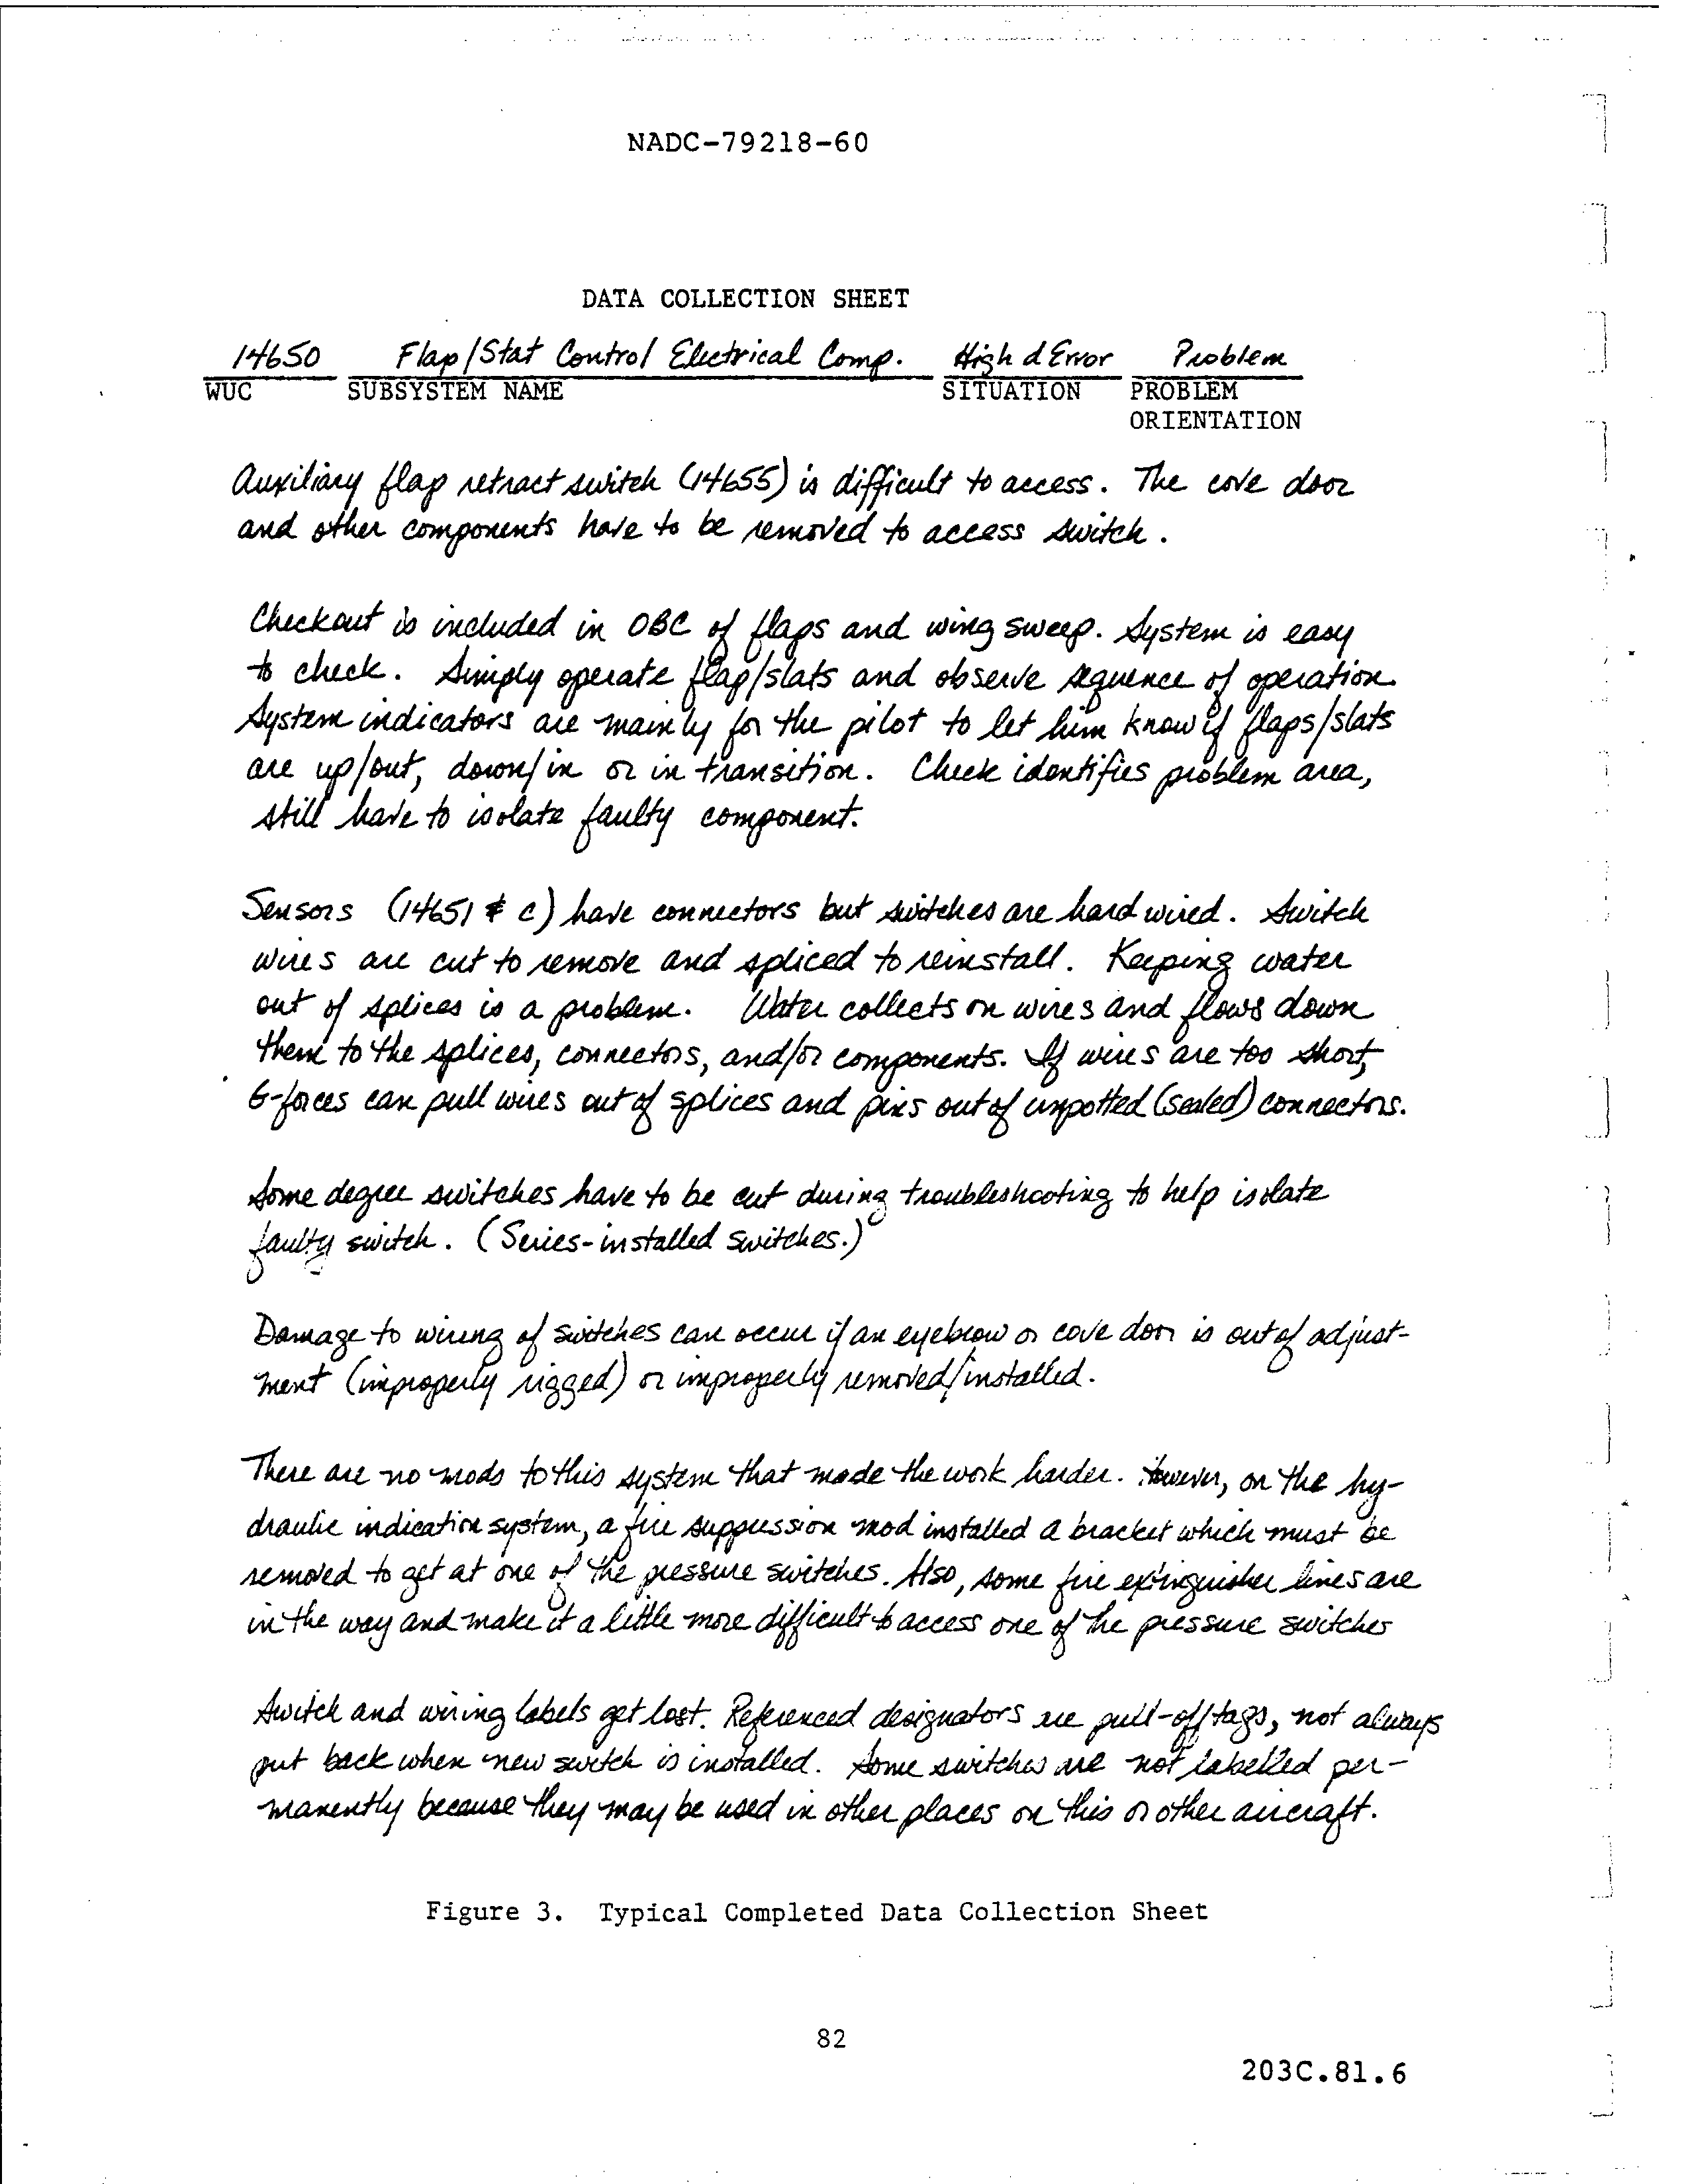 NADC-79218-60
DATA COLLECTION SHEET
14650 Flap/Stat Control Electrical Comp. High d Error Problem
WUC SUBSYSTEM NAME SITUATION PROBLEM
ORIENTATION
Auxiliary flap retract switch (14655) is difficult to access. The cove door
and other components have to be removed to access switch.
Checkout is included in OBC of flaps and wing sweep. System is easy
to check. Simply operate flap/slats and observe sequence of operation.
System indicators are mainly for the pilot to let him know if flaps/slats
are up/out, down/in or in transition. Check identifies problem area,
still have to isolate faulty component.
Sensors (14651 & C) have connectors but switches are hard wired. Switch
wires are cut to remove and spliced to reinstall. Keeping water
out of splices is a problem. Water collects on wires and flows down
them to the splices, connectors, and/or components. If wires are too short,
G-forces can pull wires out of splices and pins out of unpotted (sealed) connectors.
Some degree switches have to be cut during troubleshooting to help isolate
faulty switch. (Series-installed switches.)
Damage to wiring of switches can occur if an eyebrow or cove door is out of adjust-
ment (improperly rigged) or improperly removed/installed.
There are no mods to this system that made the work harder. However, on the hy-
draulic indication system, a fire suppression mod installed a bracket which must be
removed to get at one of the pressure switches. Also, some fire extinguisher lines are
in the way and make it a little more difficult to access one of the pressure switches
Switch and wiring labels get lost. Referenced designators are pull-off tags, not always
put back when new switch is installed. Some switches are not labelled per-
manently because they may be used in other places on this or other aircraft.
Figure 3. Typical Completed Data Collection Sheet
82
203C.81.6